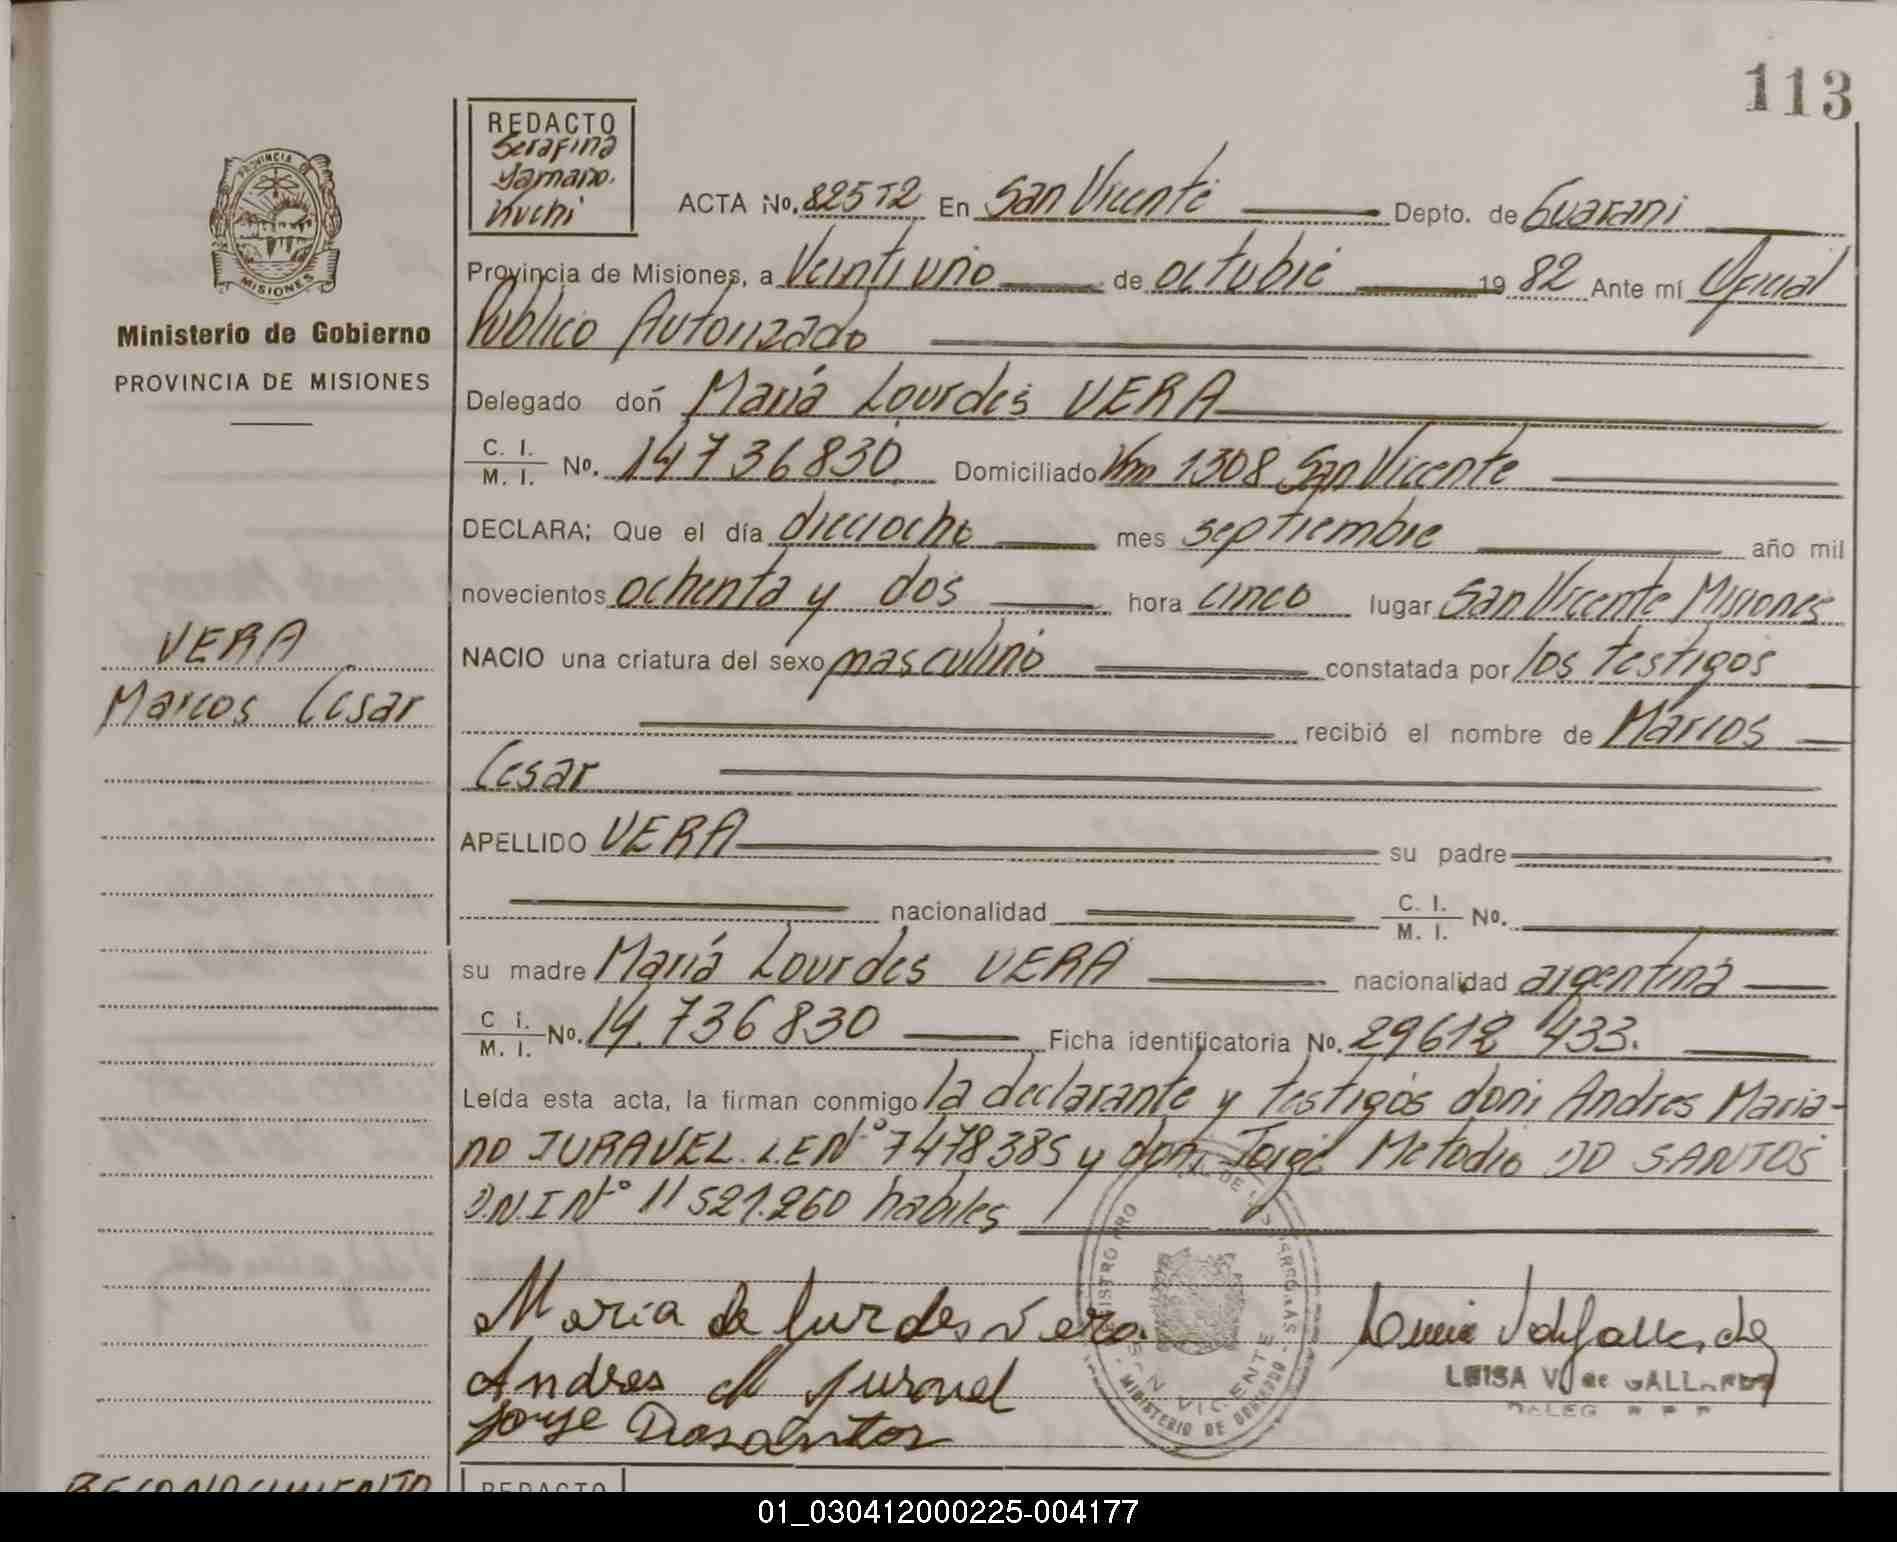 113
REDACTO
Serafina
Kuchi
PROVINCIA
MISIONES
Ministerio de Gobierno
PROVINCIA DE MISIONES
ACTA No. 82572 En San Vicente Depto. de Guarani
Provincia de Misiones, a Veintiuno de octubre 1982 Ante mí Oficial
Publico Autorizado
Delegado doñ Maria Lourdes VERA
C. I.
M. I. No. 14736830. Domiciliado Km 1308 San Vicente
DECLARA; Que el día dieciocho mes septiembre año mil
novecientos ochenta y dos hora cinco lugar San Vicente Misiones
VERA
NACIO una criatura del sexo masculino constatada por los testigos
Marcos Cesar
recibió el nombre de Marcos
Cesar
APELLIDO VERA su padre
nacionalidad C. I.
M. I. No.
su madre María Lourdes VERA nacionalidad argentina
C i.
M. I. No. 14.736830 Ficha identificatoria No. 29612 433.
Leída esta acta, la firman conmigo la declarante y testigos don: Andres Maria-
no JURAVEL L.E Nº 7478385 y don, Jorge Metodio DO SANTOS
D.N.I Nº 11521.260 habiles
Maria de lurdes Vera.
Andres M Juravel
Jorge Dosantos
SAN VICENTE
MINISTERIO DE GOBIERNO
LUISA V de GALLARDO
RECONOCIMIENTO
REDACTO
01_030412000225-004177